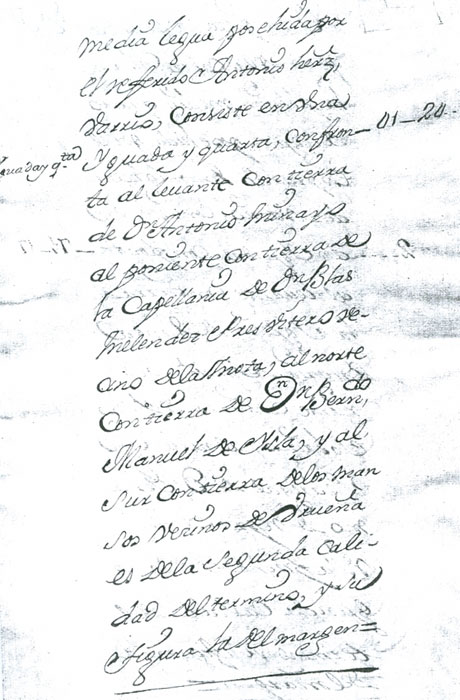 media legua posehida por
el referido Antonio herz
varrio, Consiste en Una
Yguada y qta
Yguada y quarta, confron- 01-24-
ta al levante Con tierra
de Dn Antonio
al poniente Con tierra de
la Capellania de Dn Blas
Melendez Presvitero ve-
cino de la Mota, al norte
Con tierra de Dn Berndo
Manuel de Isla, y al
Sur Con tierra de los man
sos vecinos de Urueña
es de la segunda cali-
dad del termino, y su
figura la del margen=